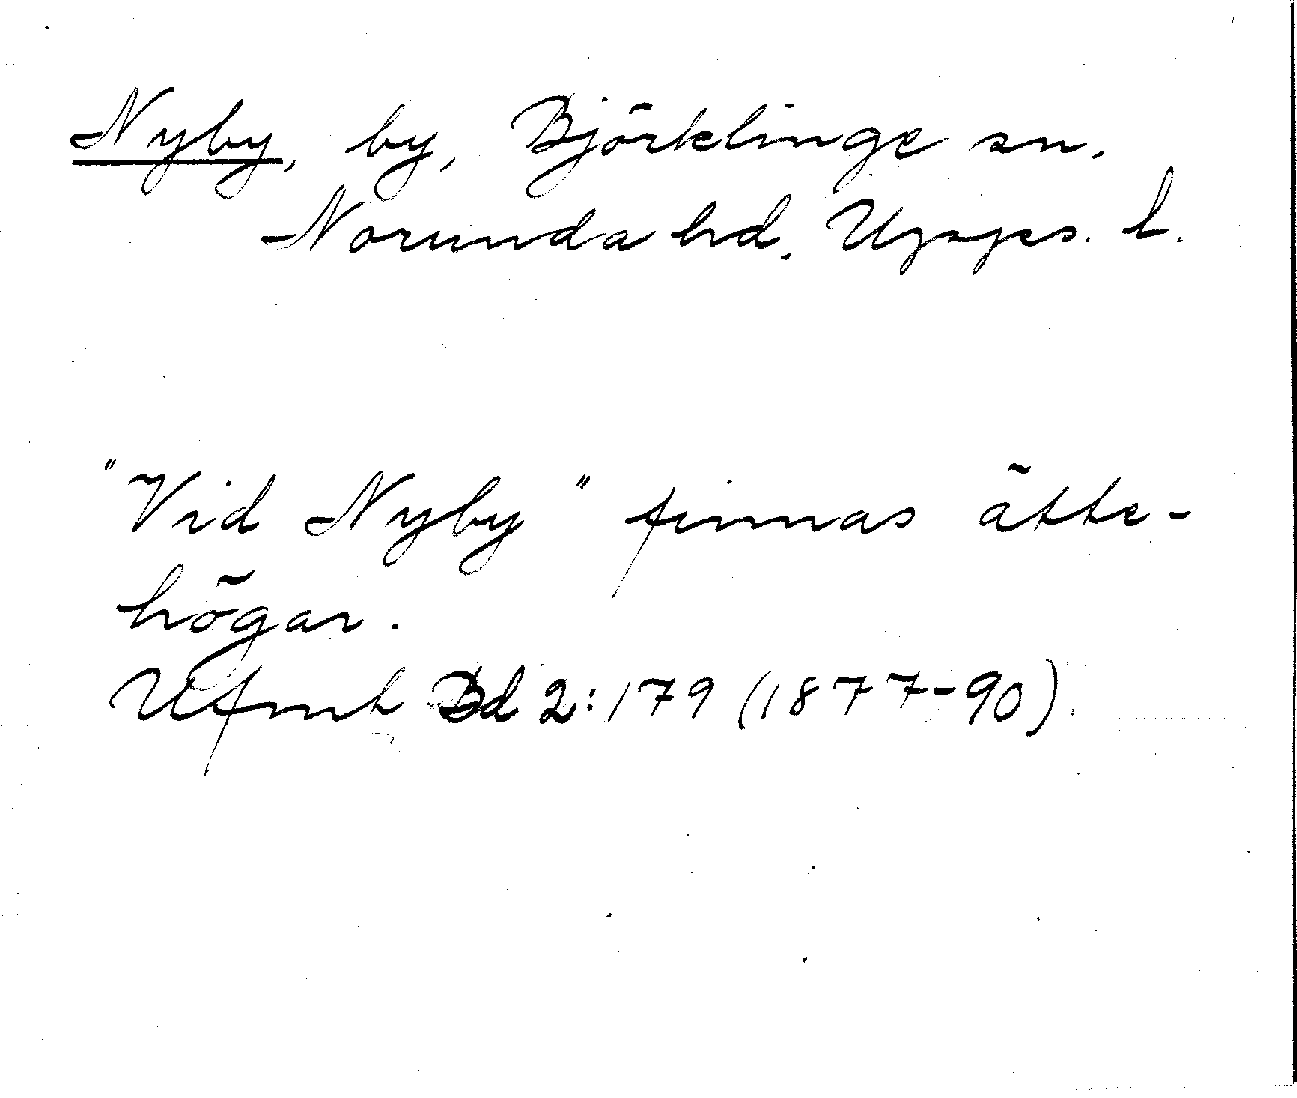 Nyby, by, Björklinge sn.
Norunda hd. Upps. l.
"Vid Nyby" finnas ätte-
högar.
Ufmt Bd 2:179 (1877-90).